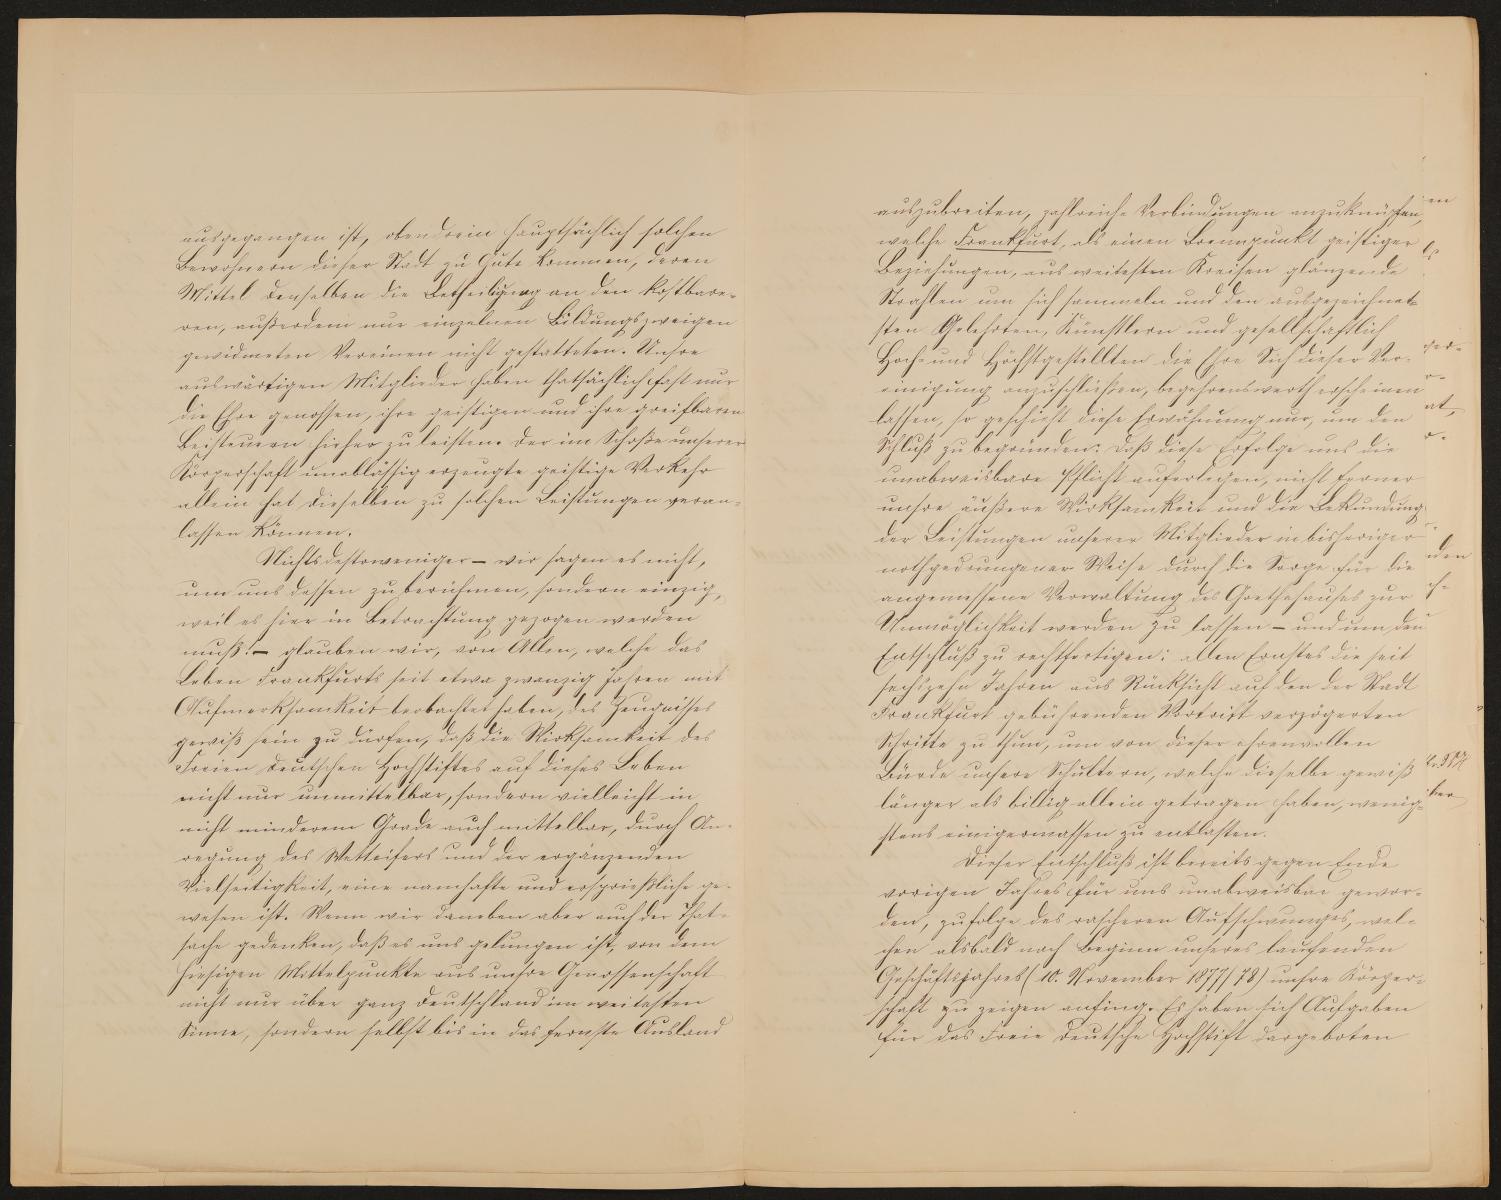 ausgegangen ist, obendrein hauptsächlich solchen
Bewohnern dieser Stadt zu Gute kommen, deren
Mittel denselben die Betheiligung an den kostbare-
ren, außerdem nur einzelnen Bildungszweigen
gewidmeten Vereinen nicht gestatteten. Unsre
auswärtigen Mitglieder haben thatsächlich fast nur
die Ehre genossen, ihre geistigen und ihre greifbaren
Beisteuern hieher zu leisten. Der im Schoße unserer
Körperschaft unablässig erzeugte geistige Verkehr
allein hat dieselben zu solchen Leistungen veran-
lassen können.
Nichtsdestoweniger – wir sagen es nicht,
um uns dessen zu berühmen, sondern einzig,
weil es hier in Betrachtung gezogen werden
muß! – glauben wir, von Allen, welche das
Leben Frankfurts seit etwa zwanzig Jahren mit
Aufmerksamkeit beobachtet haben, des Zeugnisses
gewiß sein zu dürfen, daß die Wirksamkeit des
Freien Deutschen Hochstiftes auf dieses Leben
nicht nur unmittelbar, sondern vielleicht in
nicht minderem Grade auch mittelbar, durch An-
regung des Wetteifers und der ergänzenden
Vielseitigkeit, eine namhafte und ersprießliche ge-
wesen ist. Wenn wir daneben aber auch der That-
sache gedenken, daß es uns gelungen ist, von dem
hiesigen Mittelpunkte aus unsre Genossenschaft
nicht nur über ganz Deutschland im weitesten
Sinne, sondern selbst bis in das fernste Ausland
auszubreiten, zahlreiche Verbindungen anzuknüpfen,
welche Frankfurt, als einen Brennpunkt geistiger
Beziehungen, aus weitesten Kreisen glänzende
Strahlen um sich sammeln und den ausgezeichnet-
sten Gelehrten, Künstlern und gesellschaftlich
Hoch- und Höchstgestellten die Ehre Sich dieser Ver-
einigung anzuschließen, begehrenswerth erscheinen
lassen, so geschieht diese Erwähnung nur, um den
Schluß zu begründen: daß diese Erfolge uns die
unabweisbare Pflicht auferlegen, nicht ferner
unsre äußere Wirksamkeit und die Bekundung
der Leistungen unserer Mitglieder in bisheriger
nothgedrungener Weise durch die Sorge für die
angemessene Verwaltung des Goethehauses zur
Unmöglichkeit werden zu lassen – und um den
Entschluß zu rechtfertigen: allen Ernstes die seit
sechszehn Jahren aus Rücksicht auf den der Stadt
Frankfurt gebührenden Vortritt verzögerten
Schritte zu thun, um von dieser ehrenvollen
Bürde unsere Schultern, welche dieselbe gewiß
länger als billig allein getragen haben, wenig-
stens einigermassen zu entlasten.
Dieser Entschluß ist bereits gegen Ende
vorigen Jahres für uns unabweisbar gewor-
den, zufolge des rascheren Aufschwunges, wel-
chen alsbald nach Beginn unseres laufenden
Geschäftsjahres (10. November 1877/78) unsre Körper-
schaft zu zeigen anfing. Es haben sich Aufgaben
für das Freie Deutsche Hochstift dargeboten